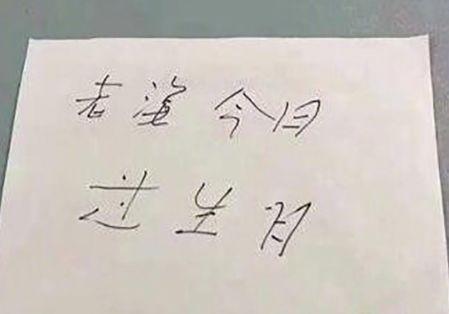 老渔今日
过生日